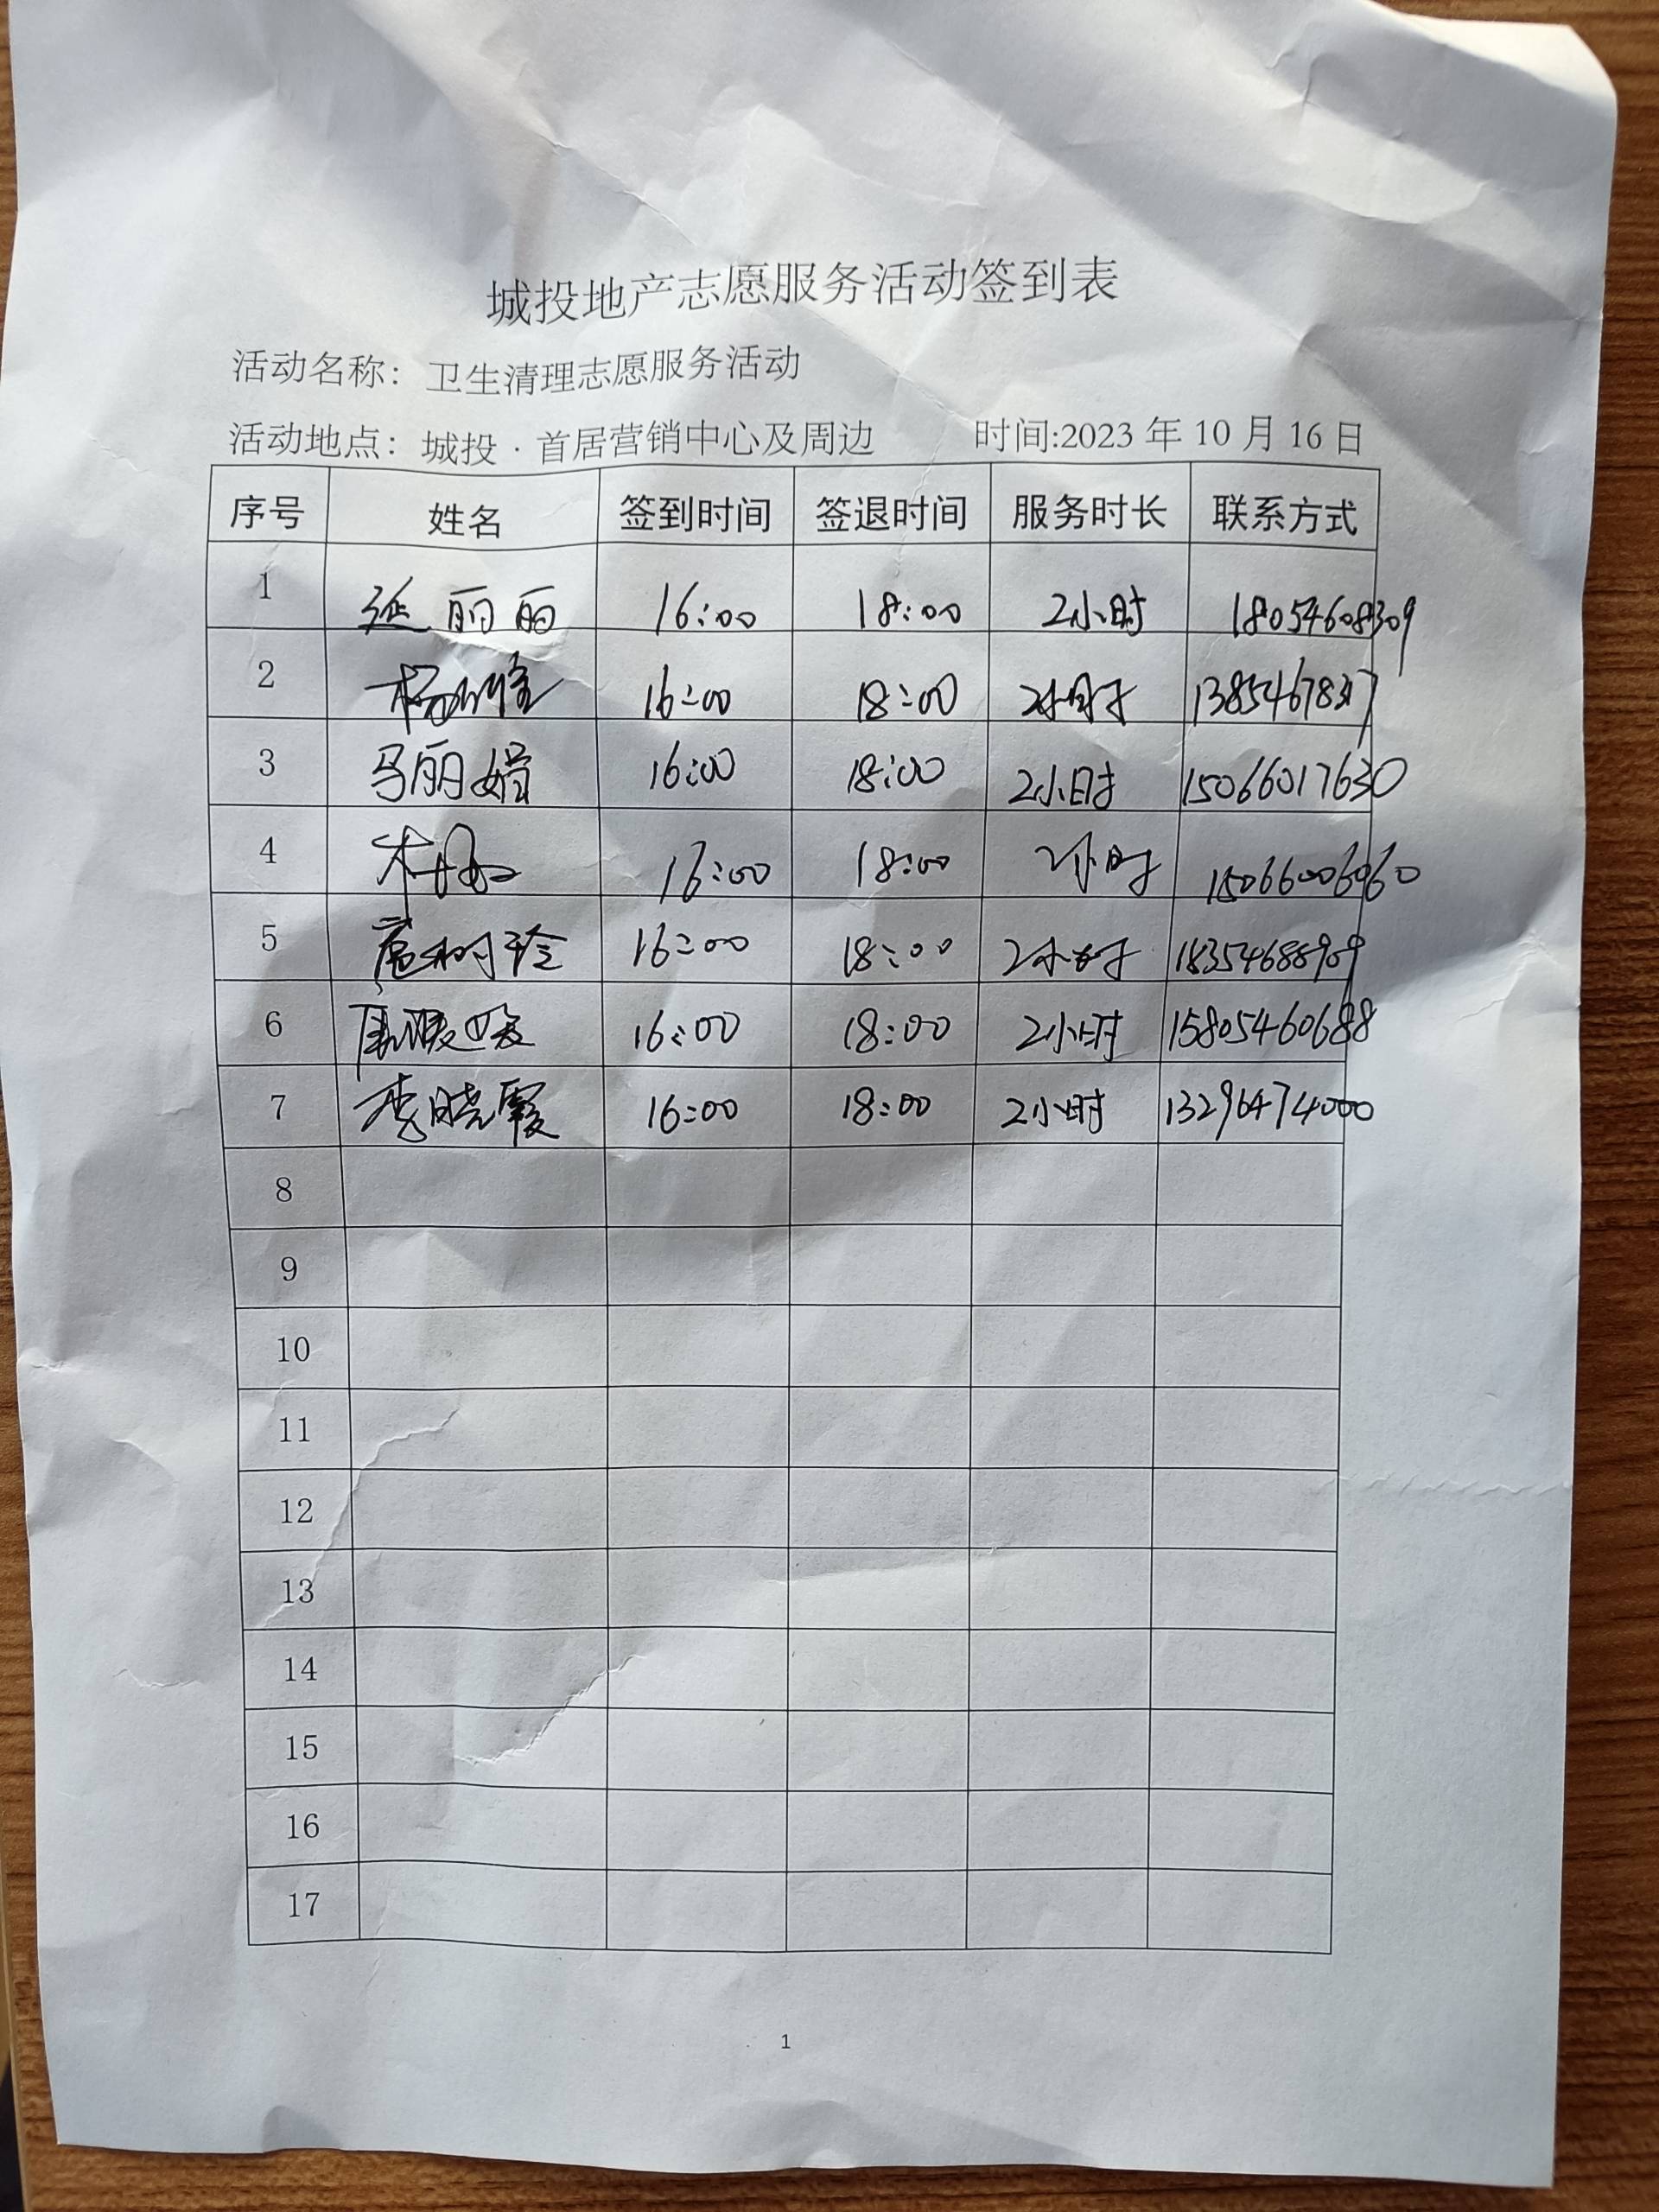 城投地产志愿服务活动签到表
活动名称：卫生清理志愿服务活动
活动地点：城投·首居营销中心及周边 时间:2023年10月16日
序号 姓名 签到时间 签退时间 服务时长 联系方式
1 延丽丽 16:00 18:00 2小时 18054608309
2 16:00 18:00 2小时
3 马丽娟 16:00 18:00 2小时 15066017630
4 16:00 18:00 2小时 15066006060
5 16:00 18:00 2小时 18354688909
6 16:00 18:00 2小时 15805460688
7 李晓霞 16:00 18:00 2小时 13296474000
8
9
10
11
12
13
14
15
16
17
1